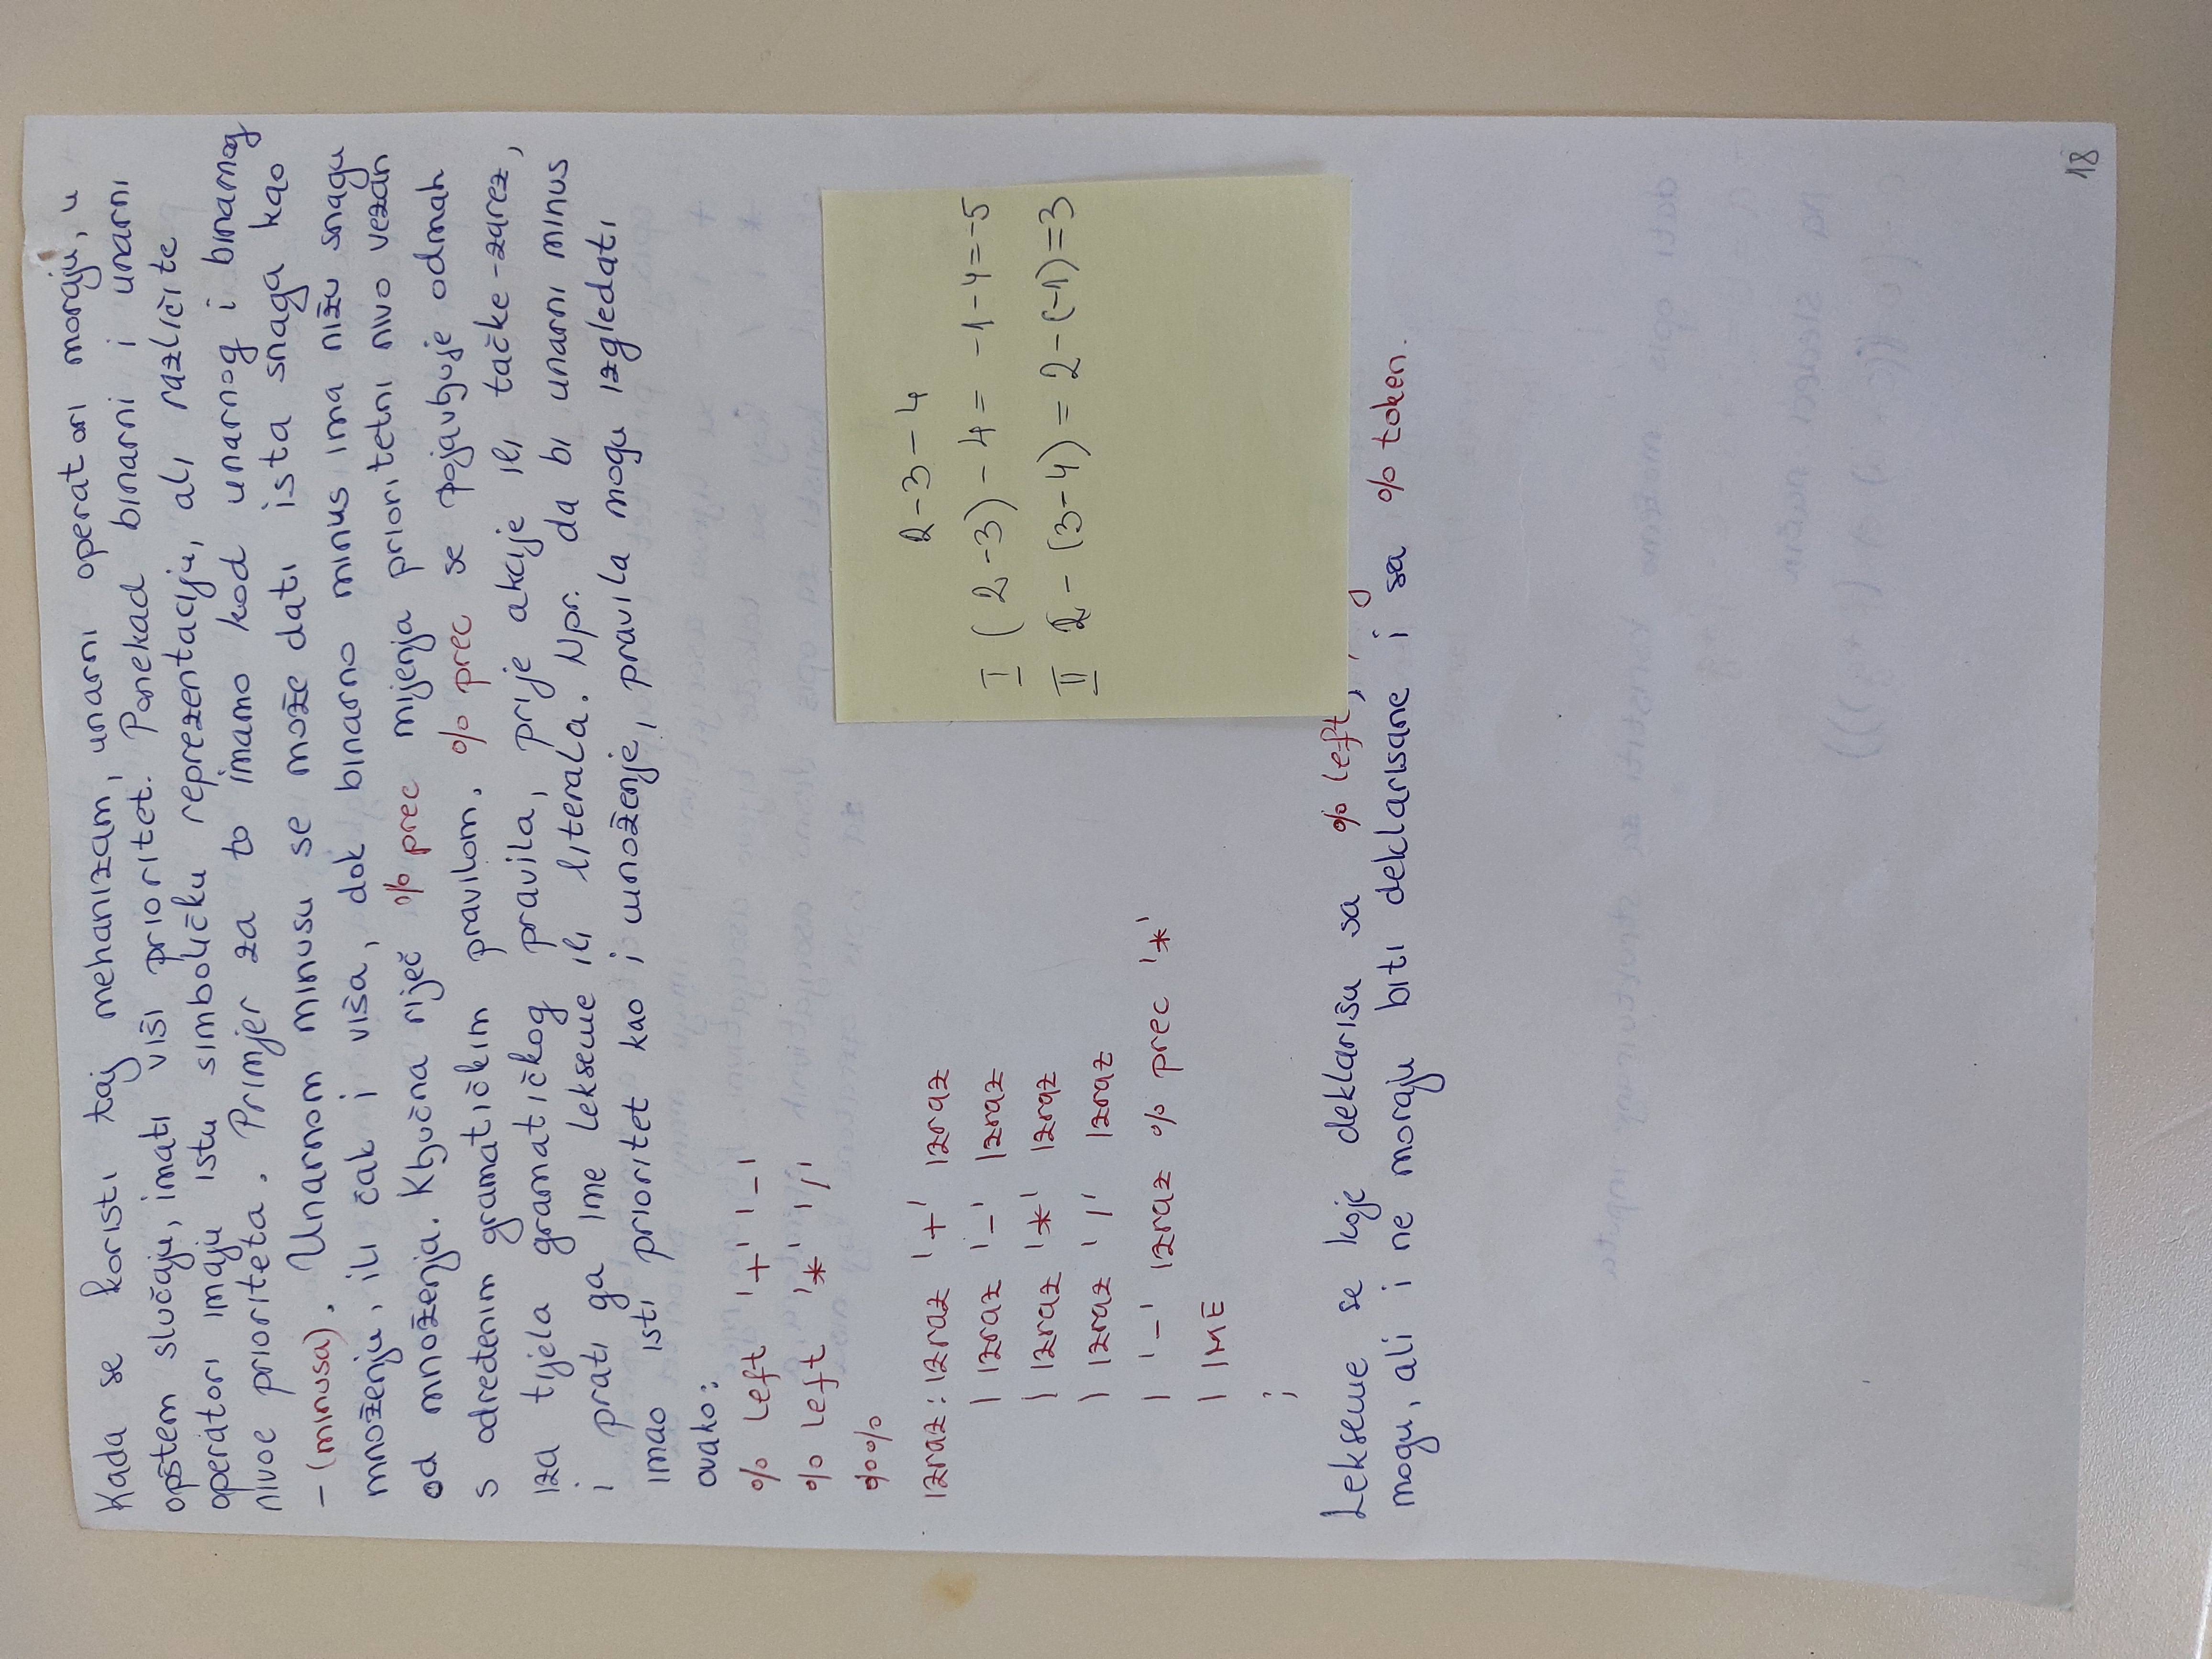 Kada se koristi taj mehanizam, unarni operatori moraju, u
opštem slučaju, imati viši prioritet. Ponekad binarni i unarni
operatori imaju istu simboličku reprezentaciju, ali različite
nivoe prioriteta. Primjer za to imamo kod unarnog i binarnog
- (minusa). Unarnom minusu se može dati ista snaga kao
množenju, ili čak i viša, dok binarno minus ima nižu snagu
od množenja. Ključna riječ % prec mijenja prioritetni nivo vezan
s određenim gramatičkim pravilom. % prec se pojavljuje odmah
iza tijela gramatičkog pravila, prije akcije ili tačke-zarez,
i prati ga ime lekseme ili literala. Npr. da bi unarni minus
imao isti prioritet kao i umnoženje, pravila mogu izgledati
ovako:
% left '+' '-'
% left '*' '/'
%%
izraz: izraz '+' izraz
| izraz '-' izraz
| izraz '*' izraz
| izraz '/' izraz
| '-' izraz % prec '*'
| IME
;
Lekseme se koje deklarišu sa % left,
mogu, ali i ne moraju biti deklarisane i sa % token.
2-3-4
I (2-3)-4 = -1-4=-5
II 2-(3-4) = 2-(-1)=3
18